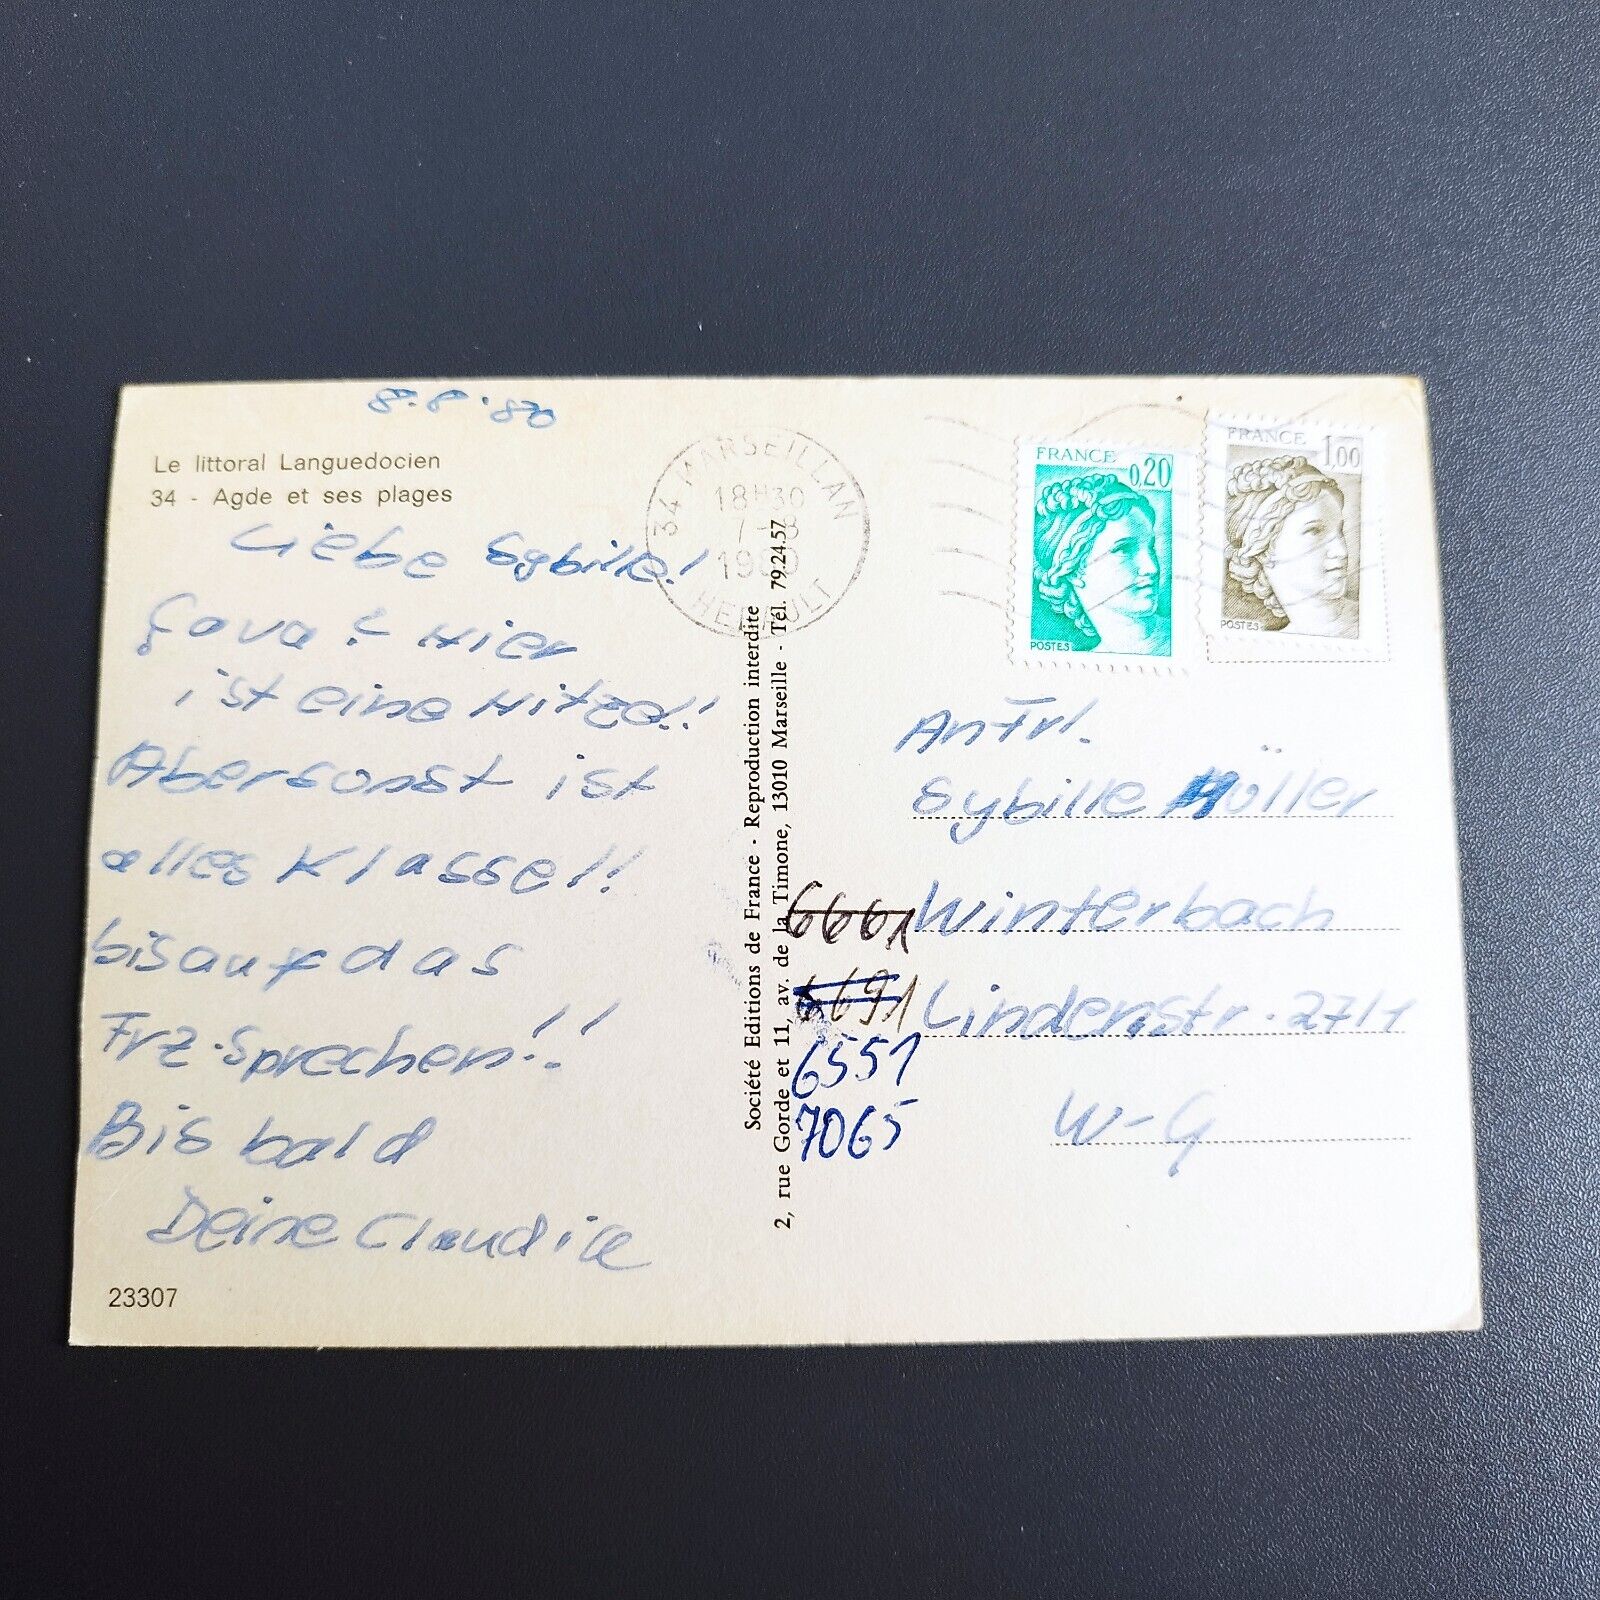 8.8.80
Le littoral Languedocien
34 - Agde et ses plages
Liebe Sybille!
Ça va? Hier
ist eine Hitze!!
Aber sonst ist
alles Klasse!!
bis auf das
Frz. Sprechen!!
Bis bald
Deine Claudia
23307
Société Editions de France - Reproduction interdite
2, rue Gorde et 11, av. de la Timone, 13010 Marseille - Tél. 79.24.57
34 MARSEILLAN
18H30
7-8
1980
HERAULT
FRANCE
0,20
POSTES
FRANCE
1,00
POSTES
An Frl.
Sybille Müller
6661 Winterbach
6691 Lindenstr. 27/1
6551
7065
W-G